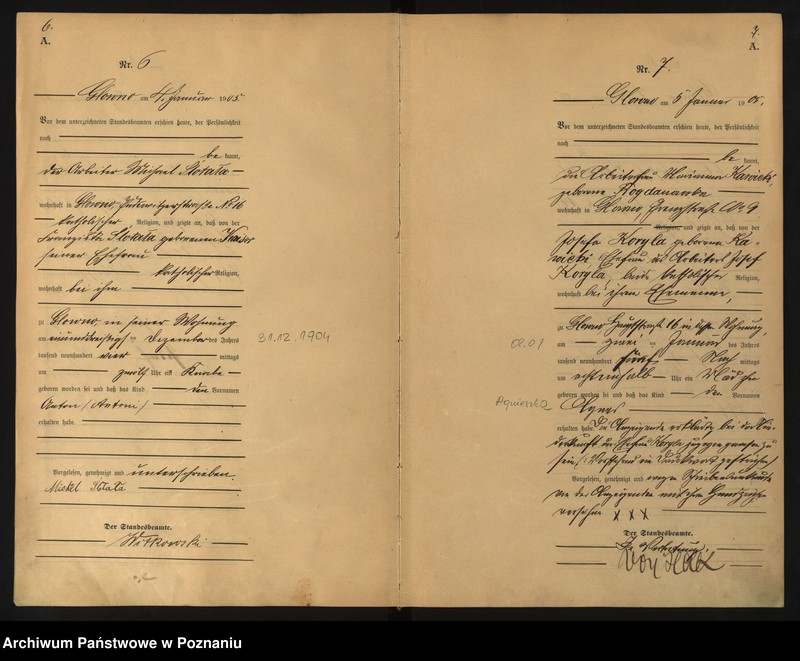 6.
A.
Nr. 6
Glowno am 4. Januar 1905.
Vor dem unterzeichneten Standesbeamten erschien heute, der Persönlichkeit
nach
be kannt,
der Arbeiter Michael Slotala
wohnhaft in Glowno, Nr. 16
katholischer Religion, und zeigte an, daß von der
Franziska Slotala geborenen
seiner Ehefrau
katholischer Religion,
wohnhaft bei ihm
zu Glowno, in seiner Wohnung
am einunddreißigsten Dezember des Jahres
tausend neunhundert vier mittags
um zwölf Uhr ein Knabe
geboren worden sei und daß das Kind den Vornamen
Anton (Antoni)
erhalten habe.
Vorgelesen, genehmigt und unterschrieben.
Der Standesbeamte.
Witkowski
31.12.1904
7.
A.
Nr. 7.
Glowno am 5 Januar 1905.
Vor dem unterzeichneten Standesbeamten erschien heute, der Persönlichkeit
nach
be kannt,
die Arbeiterfrau Marianna Kawicki,
geborene Bogdanowska
wohnhaft in Glowno, Grenzstraße No 9
Religion, und zeigte an, daß von der
Josefa Koryla geborene Ka-
wicki Ehefrau des Arbeiters Josef
Koryla, beide katholischer Religion,
wohnhaft bei ihrem Ehemanne,
zu Glowno Hauptstraße 16 in Wohnung,
am zwei ten Januar des Jahres
tausend neunhundert fünf Nach mittags
um achteinhalb Uhr ein Mädchen
geboren worden sei und daß das Kind den Vornamen
Agnes
erhalten habe. Die Anzeigende erklärte, bei der Nie-
derkunft der Ehefrau Koryla zugegen gewesen zu
sein.
Vorgelesen, genehmigt und wegen Schreibensunkunde
von der Anzeigenden mit ihrem Handzeichen
versehen x x x
Der Standesbeamte.
In Vertretung.
02.01
Agnieszka
Archiwum Państwowe w Poznaniu